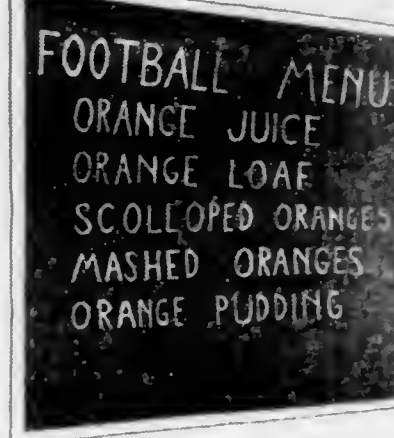 FOOTBALL MENU
ORANGE JUICE
ORANGE LOAF
SCOLLOPED ORANGES
MASHED ORANGES
ORANGE PUDDING